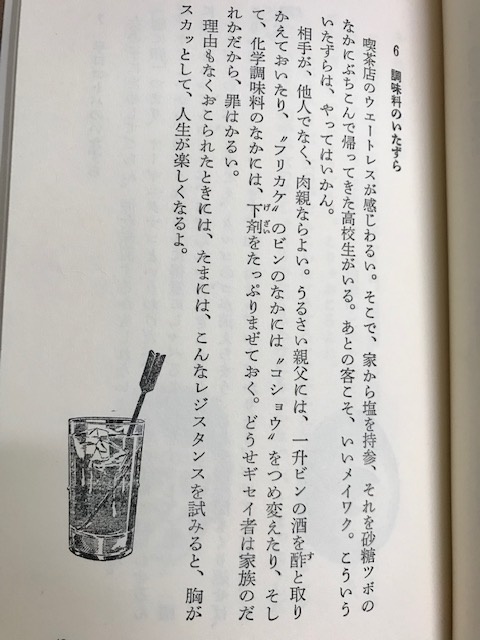 6 調味料のいたずら
喫茶店のウエートレスが感じわるい。そこで、家から塩を持参、それを砂糖ツボの
なかにぶちこんで帰ってきた高校生がいる。あとの客こそ、いいメイワク。こういう
いたずらは、やってはいかん。
相手が、他人でなく、肉親ならよい。うるさい親父には、一升ビンの酒を酢と取り
かえておいたり、〝フリカケ〟のビンのなかには〝コショウ〟をつめ変えたり、そし
て、化学調味料のなかには、下剤をたっぷりまぜておく。どうせギセイ者は家族のだ
れかだから、罪はかるい。
理由もなくおこられたときには、たまには、こんなレジスタンスを試みると、胸が
スカッとして、人生が楽しくなるよ。